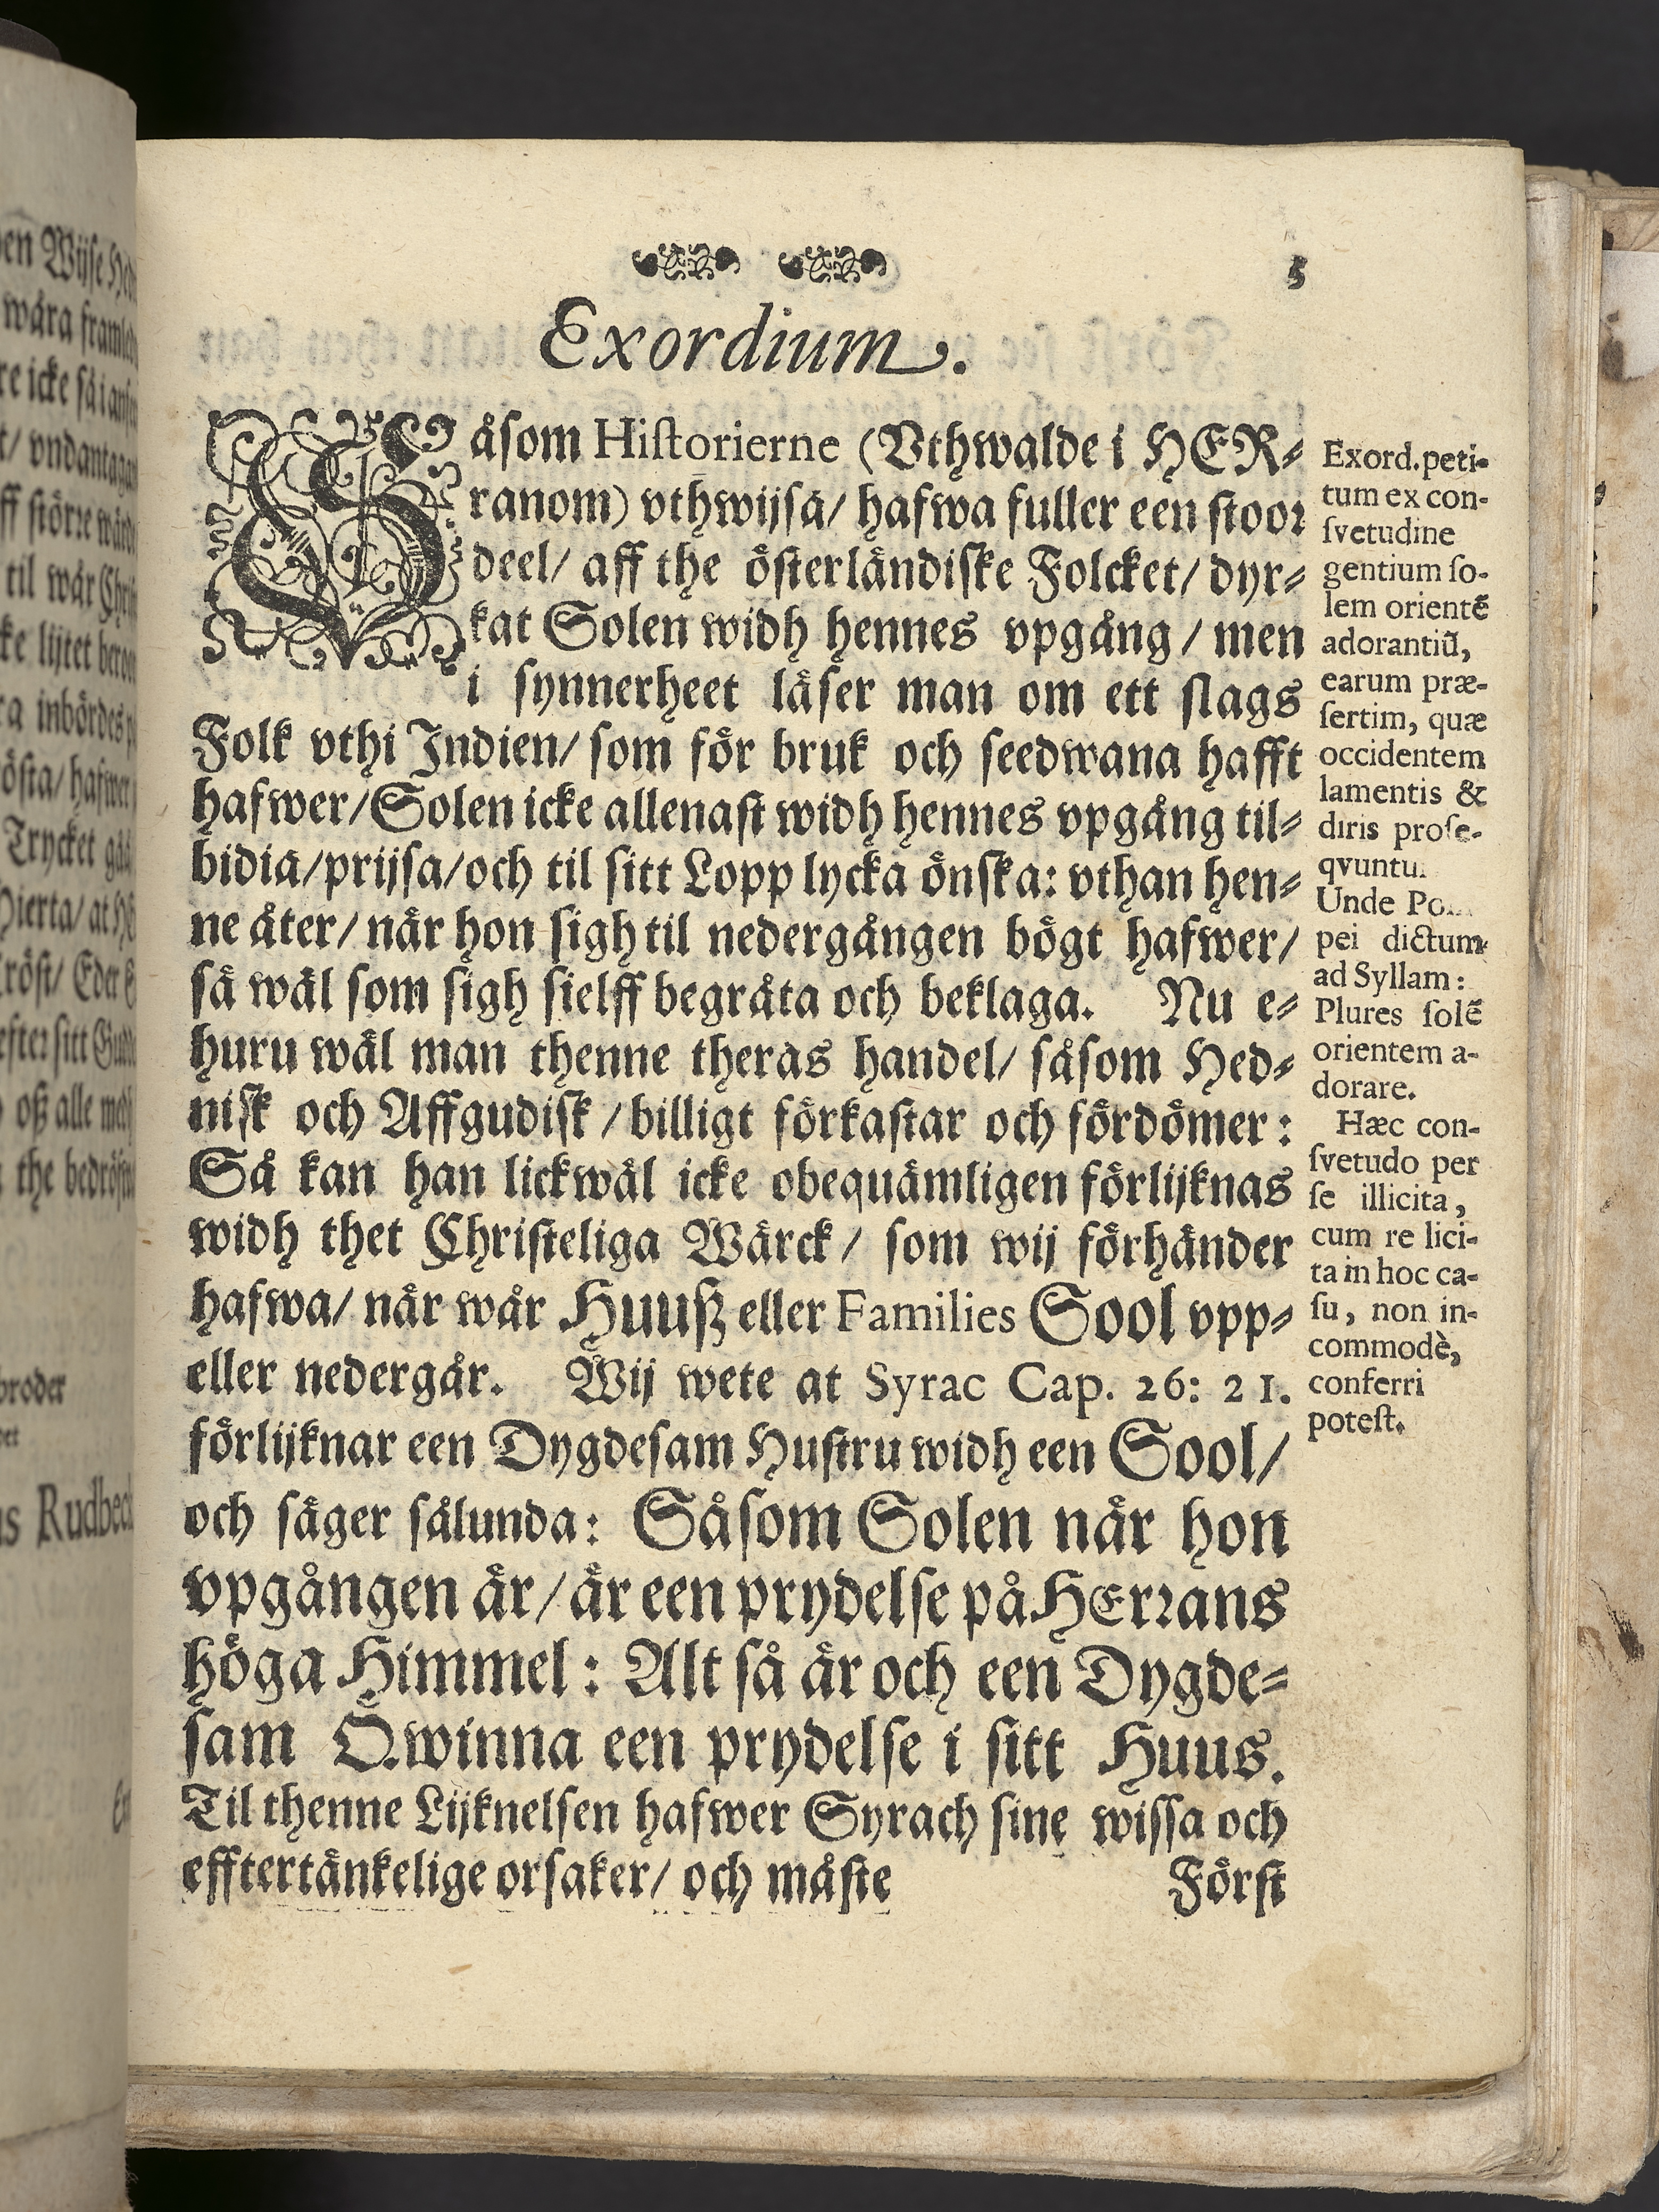 5
Exordium.
Såsom Historierne (Vthwalde i HER⸗
ranom) vthwijsa/ hafwa fuller een stoor
deel/ aff the österländiske Folcket/ dyr⸗
kat Solen widh hennes vpgång / men
i synnerheet läser man om ett slags
Folk vthi Indien/ som för bruk och seedwana hafft
hafwer/ Solen icke allenast widh hennes vpgång til⸗
bidia/ prijsa/ och til sitt Lopp lycka önska: vthan hen⸗
ne åter/ når hon sigh til nedergången bögt hafwer/
så wäl som sigh sielff begråta och beklaga. Nu e⸗
huru wäl man thenne theras handel/ såsom Hed⸗
nisk och Affgudisk / billigt förkastar och fördömer:
Så kan han lickwäl icke obequämligen förlijknas
widh thet Christeliga Wärck / som wij förhänder
hafwa/ når wår Huusz eller Families Sool vpp⸗
eller nedergår. Wij wete at Syrac Cap. 26: 21.
förlijknar een Dygdesam Hustru widh een Sool/
och säger sålunda: Såsom Solen når hon
vpgången är/ är een prydelse på HErrans
höga Himmel: Alt så är och een Dygde⸗
sam Qwinna een prydelse i sitt Huus.
Til thenne Lijknelsen hafwer Syrach sine wissa och
efftertänkelige orsaker/ och måste
Först
Exord. peti-
tum ex con-
svetudine
gentium so-
lem orientē
adorantiū,
earum præ-
sertim, quæ
occidentem
lamentis &
diris prose-
qvuntu
Unde Po
pei dictum
ad Syllam:
Plures solē
orientem a-
dorare.
Hæc con-
svetudo per
se illicita,
cum re lici-
ta in hoc ca-
su, non in-
commodè,
conferri
potest.